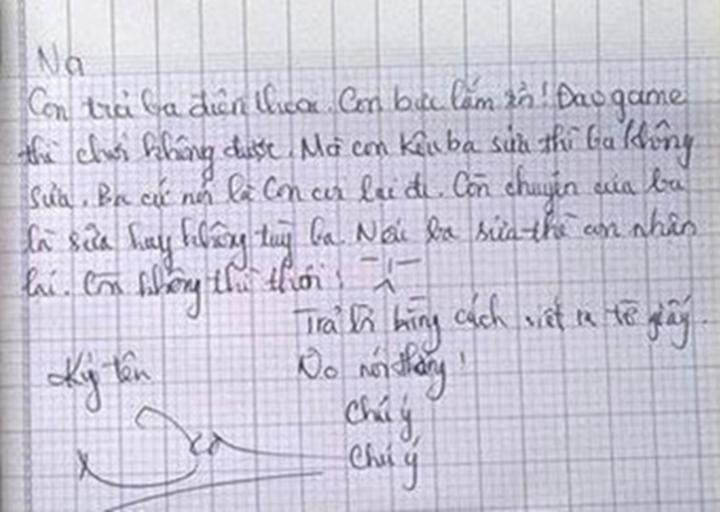 Na
Con trả ba điện thoại. Con bực lắm rồi! Đao game
thì chơi không được. Mà con kêu ba sửa thì ba không
sửa. Ba cứ nói là con cứ lại đi. Còn chuyện của ba
là sửa hay không tuỳ ba. Nếu ba sửa thì con nhân
lại. Còn không thì thôi!
Trả lời bằng cách viết ra tờ giấy.
No nói thẳng!
Ký tên
Chú ý
Chú ý